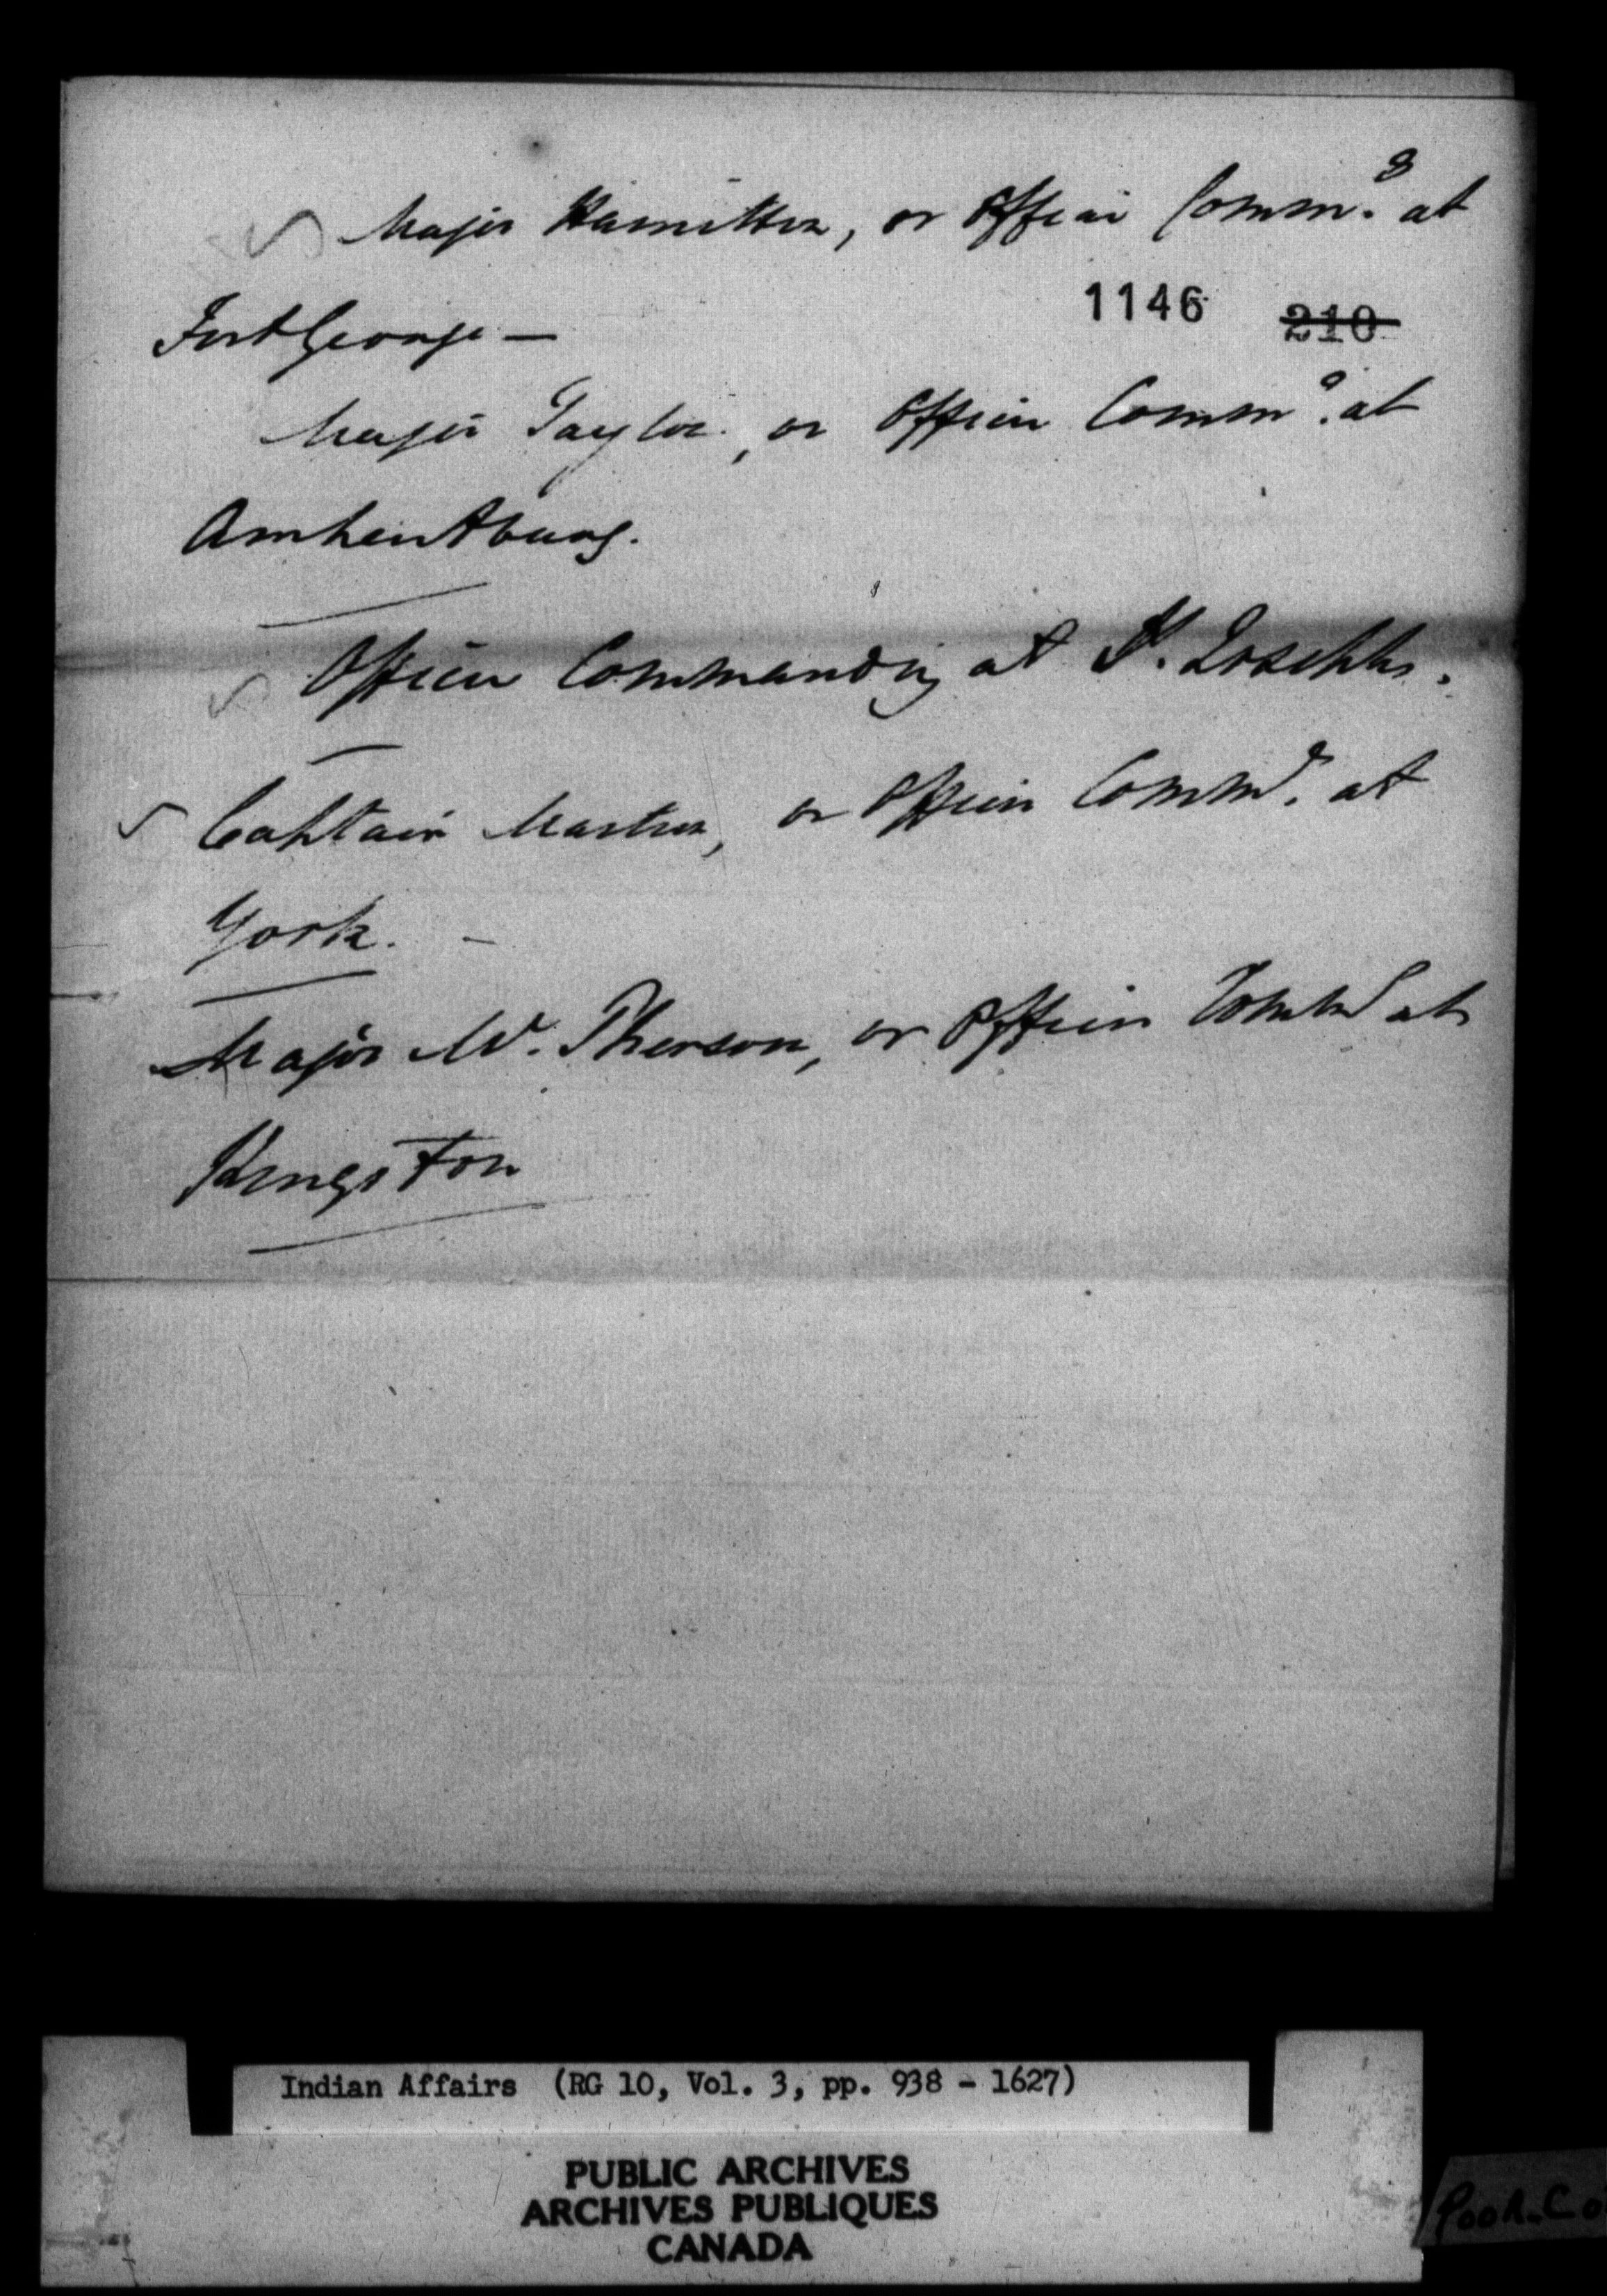 Major Hamilton, or Officer Comm.g at
1146 210
Fort George —
Major Taylor, or Officer Comm.g at
Amherstburg.
Officer Commanding at St. Josephs.
Captain Martin, or Officer Comm.g at
York. —
Major Mc. Pherson, or Officer Commd at
Kingston
Indian Affairs (RG 10, Vol. 3, pp. 938 - 1627)
PUBLIC ARCHIVES
ARCHIVES PUBLIQUES
CANADA